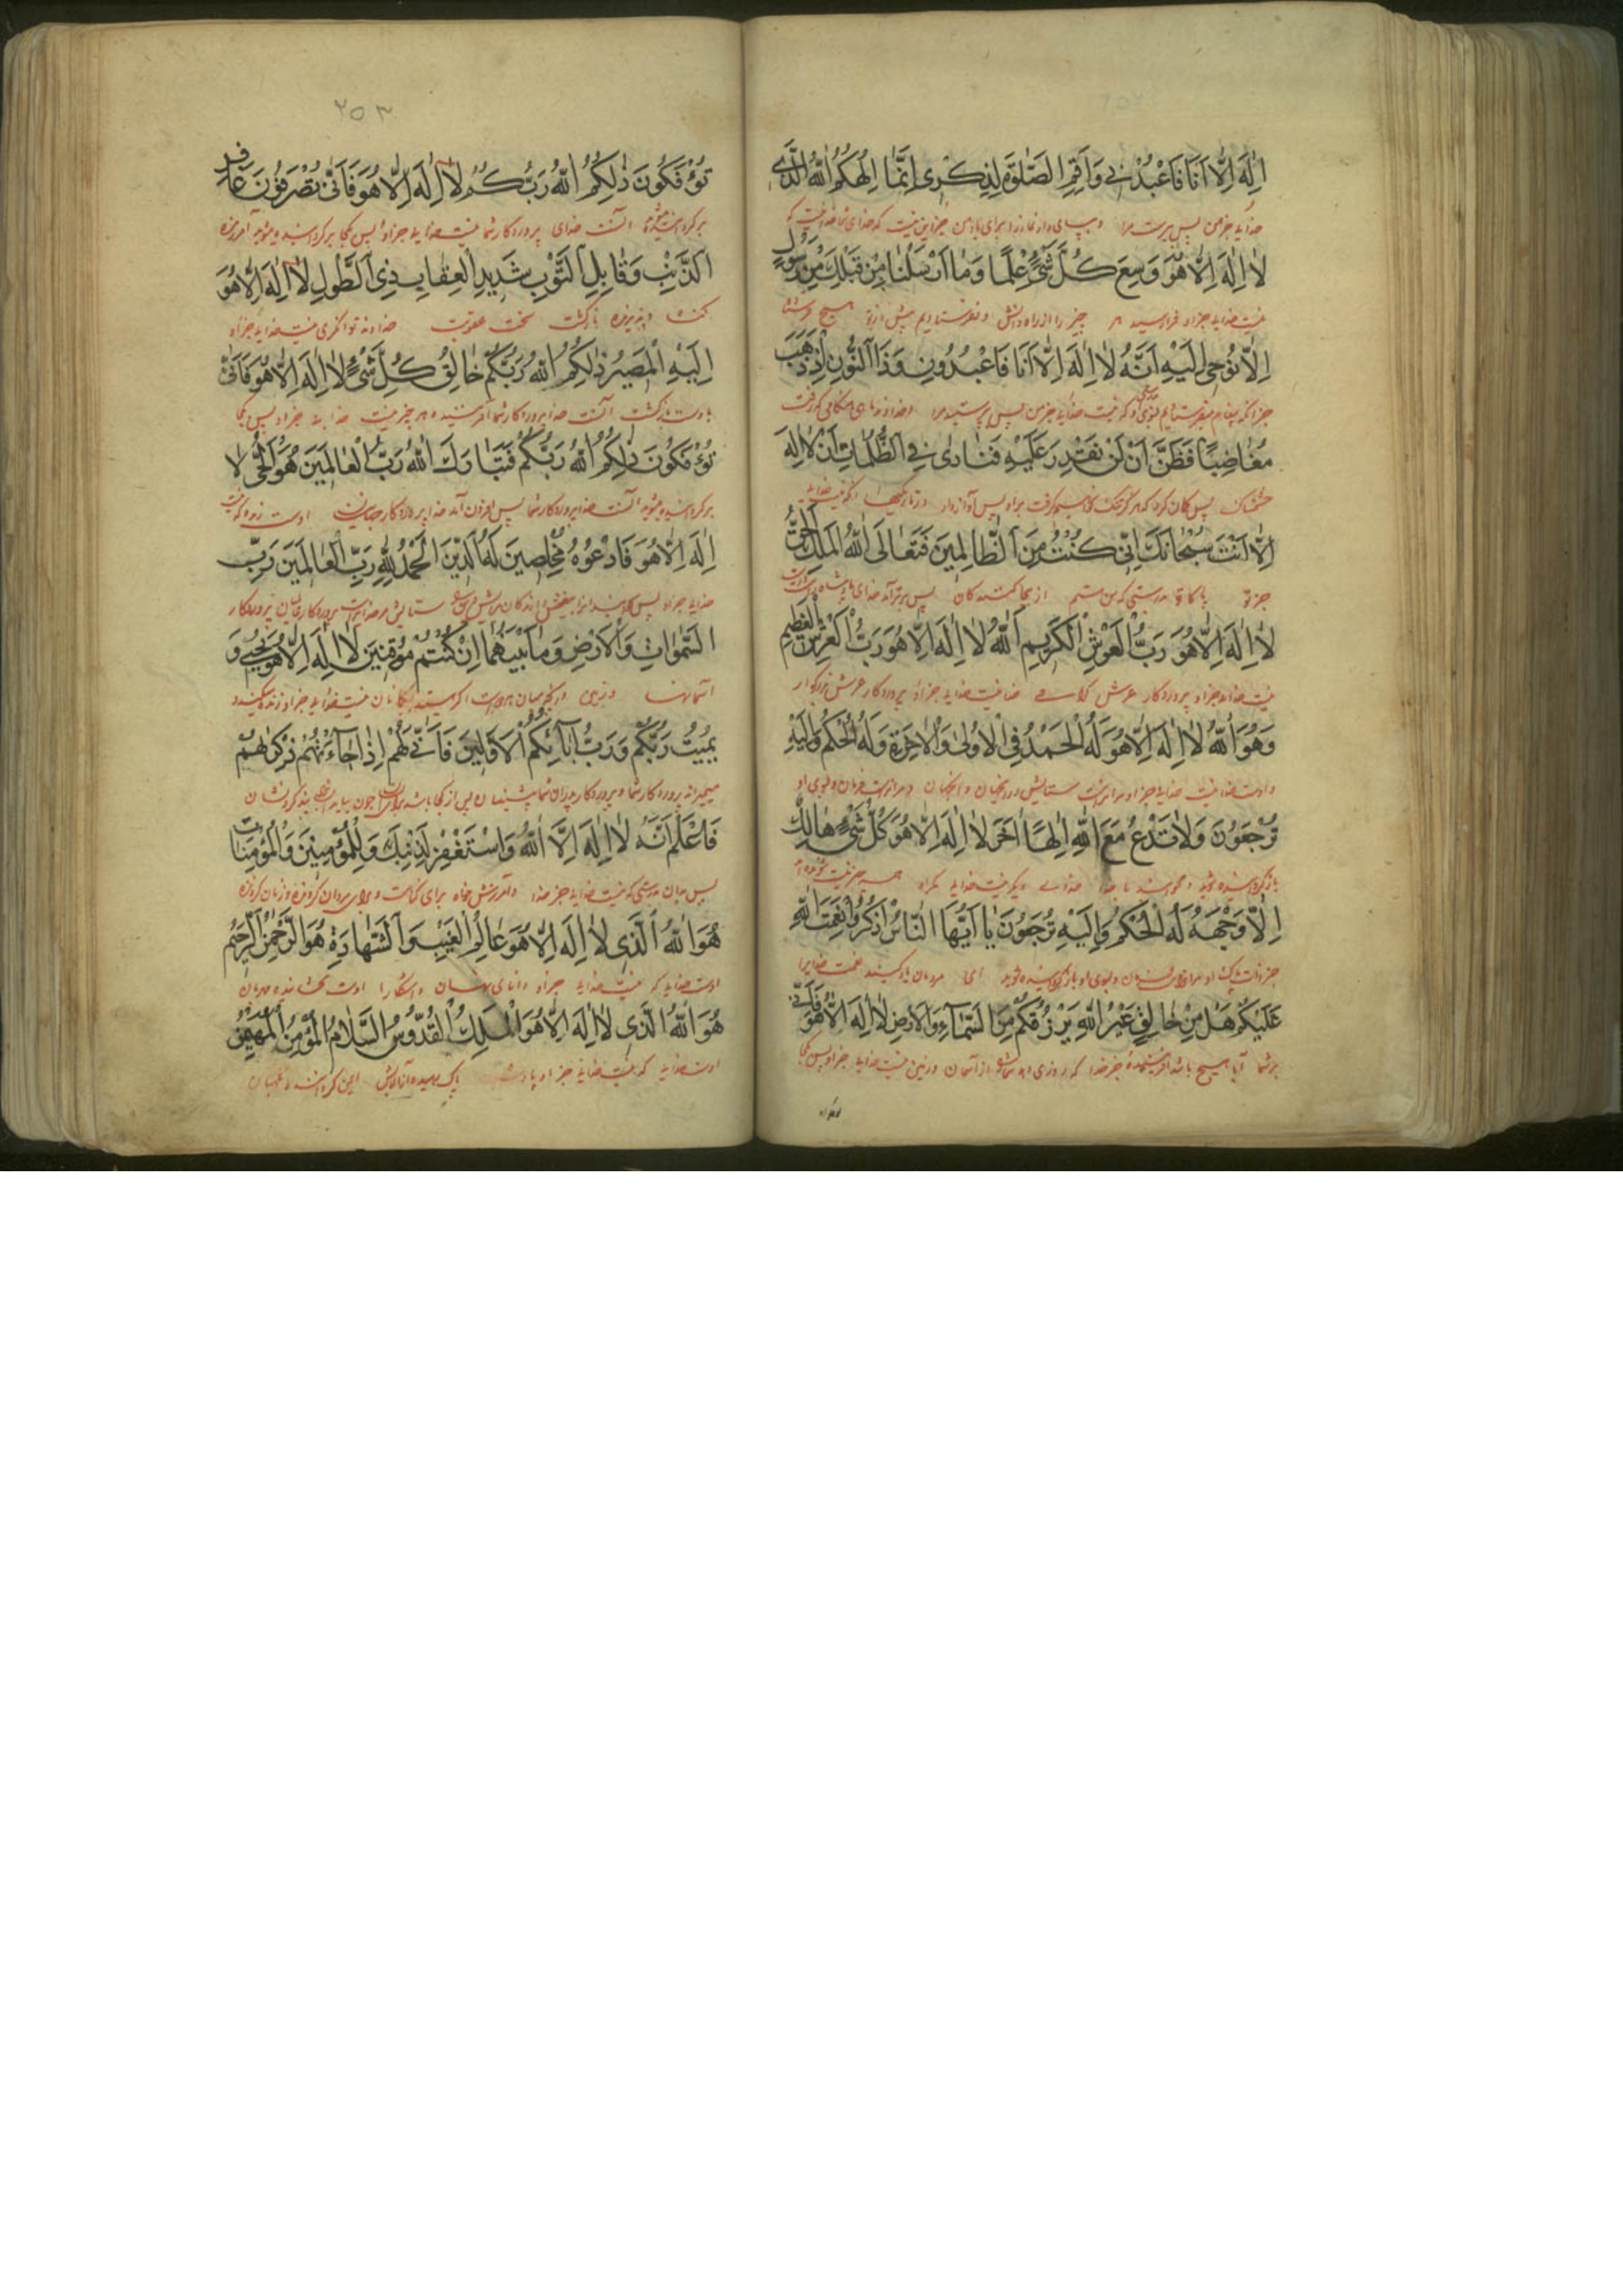 اِلٰهَ اِلَّا اَنَا فَاعْبُدْنِي وَاَقِمِ الصَّلٰوةَ لِذِكْرِي اِنَّمَا اِلٰهُكُمُ اللّٰهُ الَّذِي
خدایه جز من پس پرست مرا و بپای دار نماز را برای یاد من جز این نیست که خدای شما خداییست که
لَا اِلٰهَ اِلَّا هُوَ وَسِعَ كُلَّ شَيْءٍ عِلْمًا وَمَا اَرْسَلْنَا مِنْ قَبْلِكَ مِنْ رَسُولٍ
نیست خدایه جز او فرا رسید هر چیز را از راه دانش و نفرستادیم پیش از تو هیچ فرستاده
اِلَّا نُوحِي اِلَيْهِ اَنَّهُ لَا اِلٰهَ اِلَّا اَنَا فَاعْبُدُونِ وَذَا النُّونِ اِذْ ذَهَبَ
جز آنکه پیغام میفرستادیم بسوی او که نیست خدایه جز من پس پرستید مرا و خداوند ماهی هنگامی که رفت
مُغَاضِبًا فَظَنَّ اَنْ لَنْ نَقْدِرَ عَلَيْهِ فَنَادٰى فِي الظُّلُمَاتِ اَنْ لَا اِلٰهَ
خشمناک پس گمان کرد که هرگز تنگ نخواهیم گرفت براو پس آواز داد در تاریکیها آنکه نیست خدایه
اِلَّا اَنْتَ سُبْحَانَكَ اِنِّي كُنْتُ مِنَ الظَّالِمِينَ فَتَعَالَى اللّٰهُ الْمَلِكُ الْحَقُّ
جز تو پاکا تو بدرستی که من هستم از ستم کنندکان پس برتر آمد خدای پادشاه
لَا اِلٰهَ اِلَّا هُوَ رَبُّ الْعَرْشِ الْكَرِيمِ اَللّٰهُ لَا اِلٰهَ اِلَّا هُوَ رَبُّ الْعَرْشِ الْعَظِيمِ
نیست خدایه جز او پروردکار عرش کرامی خدا نیست خدایه جز او پروردکار عرش بزرکوار
وَهُوَ اللّٰهُ لَا اِلٰهَ اِلَّا هُوَ لَهُ الْحَمْدُ فِي الْاُولٰى وَالْاٰخِرَةِ وَلَهُ الْحُكْمُ وَاِلَيْهِ
و اوست خدا نیست خدایه جز او مر اوراست ستایش در اینجهان و آنجهان و مر اوراست فرمان و بسوی او
تُرْجَعُونَ وَلَا تَدْعُ مَعَ اللّٰهِ اِلٰهًا اٰخَرَ لَا اِلٰهَ اِلَّا هُوَ كُلُّ شَيْءٍ هَالِكٌ
باز کردانیده شوید و مخوانید با خدا خدای دیگر نیست خدایه مکر او همه چیز نیست شونده
اِلَّا وَجْهَهُ لَهُ الْحُكْمُ وَاِلَيْهِ تُرْجَعُونَ يَا اَيُّهَا النَّاسُ اذْكُرُوا نِعْمَتَ اللّٰهِ
جز ذات پاک او مر اوراست فرمان و بسوی او باز کردانیده شوید ای مردمان یاد کنید نعمت خدایرا
عَلَيْكُمْ هَلْ مِنْ خَالِقٍ غَيْرُ اللّٰهِ يَرْزُقُكُمْ مِنَ السَّمَاءِ وَالْاَرْضِ لَا اِلٰهَ اِلَّا هُوَ فَاَنّٰى
بر شما آیا هیچ باشد آفریننده جز خدا که روزی دهد شما را از آسمان و زمین نیست خدایه جز او پس کجا
۲۵۳
تُؤْفَكُونَ ذٰلِكُمُ اللّٰهُ رَبُّكُمْ لَا اِلٰهَ اِلَّا هُوَ فَاَنّٰى تُصْرَفُونَ غَافِرِ
برکردانیده میشوید آنست خدای پروردکار شما نیست خدایه جز او پس کجا برکردانیده میشوید آمرزنده
الذَّنْبِ وَقَابِلِ التَّوْبِ شَدِيدِ الْعِقَابِ ذِي الطَّوْلِ لَا اِلٰهَ اِلَّا هُوَ
کناه و پذیرنده بازکشت سخت عقوبت خداوند توانکری نیست خدایه جز او
اِلَيْهِ الْمَصِيرُ ذٰلِكُمُ اللّٰهُ رَبُّكُمْ خَالِقُ كُلِّ شَيْءٍ لَا اِلٰهَ اِلَّا هُوَ فَاَنّٰى
باوست بازکشت آنست خدا پروردکار شما آفریننده هر چیز نیست خدایه جز او پس کجا
تُؤْفَكُونَ ذٰلِكُمُ اللّٰهُ رَبُّكُمْ فَتَبَارَكَ اللّٰهُ رَبُّ الْعَالَمِينَ هُوَ الْحَيُّ لَا
برکردانیده میشوید آنست خدا پروردکار شما پس افزون آمد خدا پروردکار جهانیان اوست زنده که نیست
اِلٰهَ اِلَّا هُوَ فَادْعُوهُ مُخْلِصِينَ لَهُ الدِّينَ الْحَمْدُ لِلّٰهِ رَبِّ الْعَالَمِينَ رَبِّ
السَّمٰوَاتِ وَالْاَرْضِ وَمَا بَيْنَهُمَا اِنْ كُنْتُمْ مُوقِنِينَ لَا اِلٰهَ اِلَّا هُوَ يُحْيِي وَ
آسمانها و زمین و آنچه میان هر دوست اکر هستید بیکمانان نیست خدایه جز او زنده میکند و
يُمِيتُ رَبُّكُمْ وَرَبُّ اٰبَائِكُمُ الْاَوَّلِينَ فَاَنّٰى لَهُمْ اِذَا جَاءَتْهُمْ ذِكْرٰيهُمْ
میمیراند پروردکار شما و پروردکار پدران شما پیشینیان پس از کجا باشد
فَاعْلَمْ اَنَّهُ لَا اِلٰهَ اِلَّا اللّٰهُ وَاسْتَغْفِرْ لِذَنْبِكَ وَلِلْمُؤْمِنِينَ وَالْمُؤْمِنَاتِ
پس بدان بدرستی که نیست خدایه جز خدا و آمرزش خواه برای کناهت و برای مردان کرونده و زنان کرونده
هُوَ اللّٰهُ الَّذِي لَا اِلٰهَ اِلَّا هُوَ عَالِمُ الْغَيْبِ وَالشَّهَادَةِ هُوَ الرَّحْمٰنُ الرَّحِيمُ
اوست خدایه که نیست خدایه جز او دانای نهان و آشکارا اوست بخشاینده مهربان
هُوَ اللّٰهُ الَّذِي لَا اِلٰهَ اِلَّا هُوَ الْمَلِكُ الْقُدُّوسُ السَّلَامُ الْمُؤْمِنُ الْمُهَيْمِنُ
اوست خدایه که نیست خدایه جز او پادشاه پاک